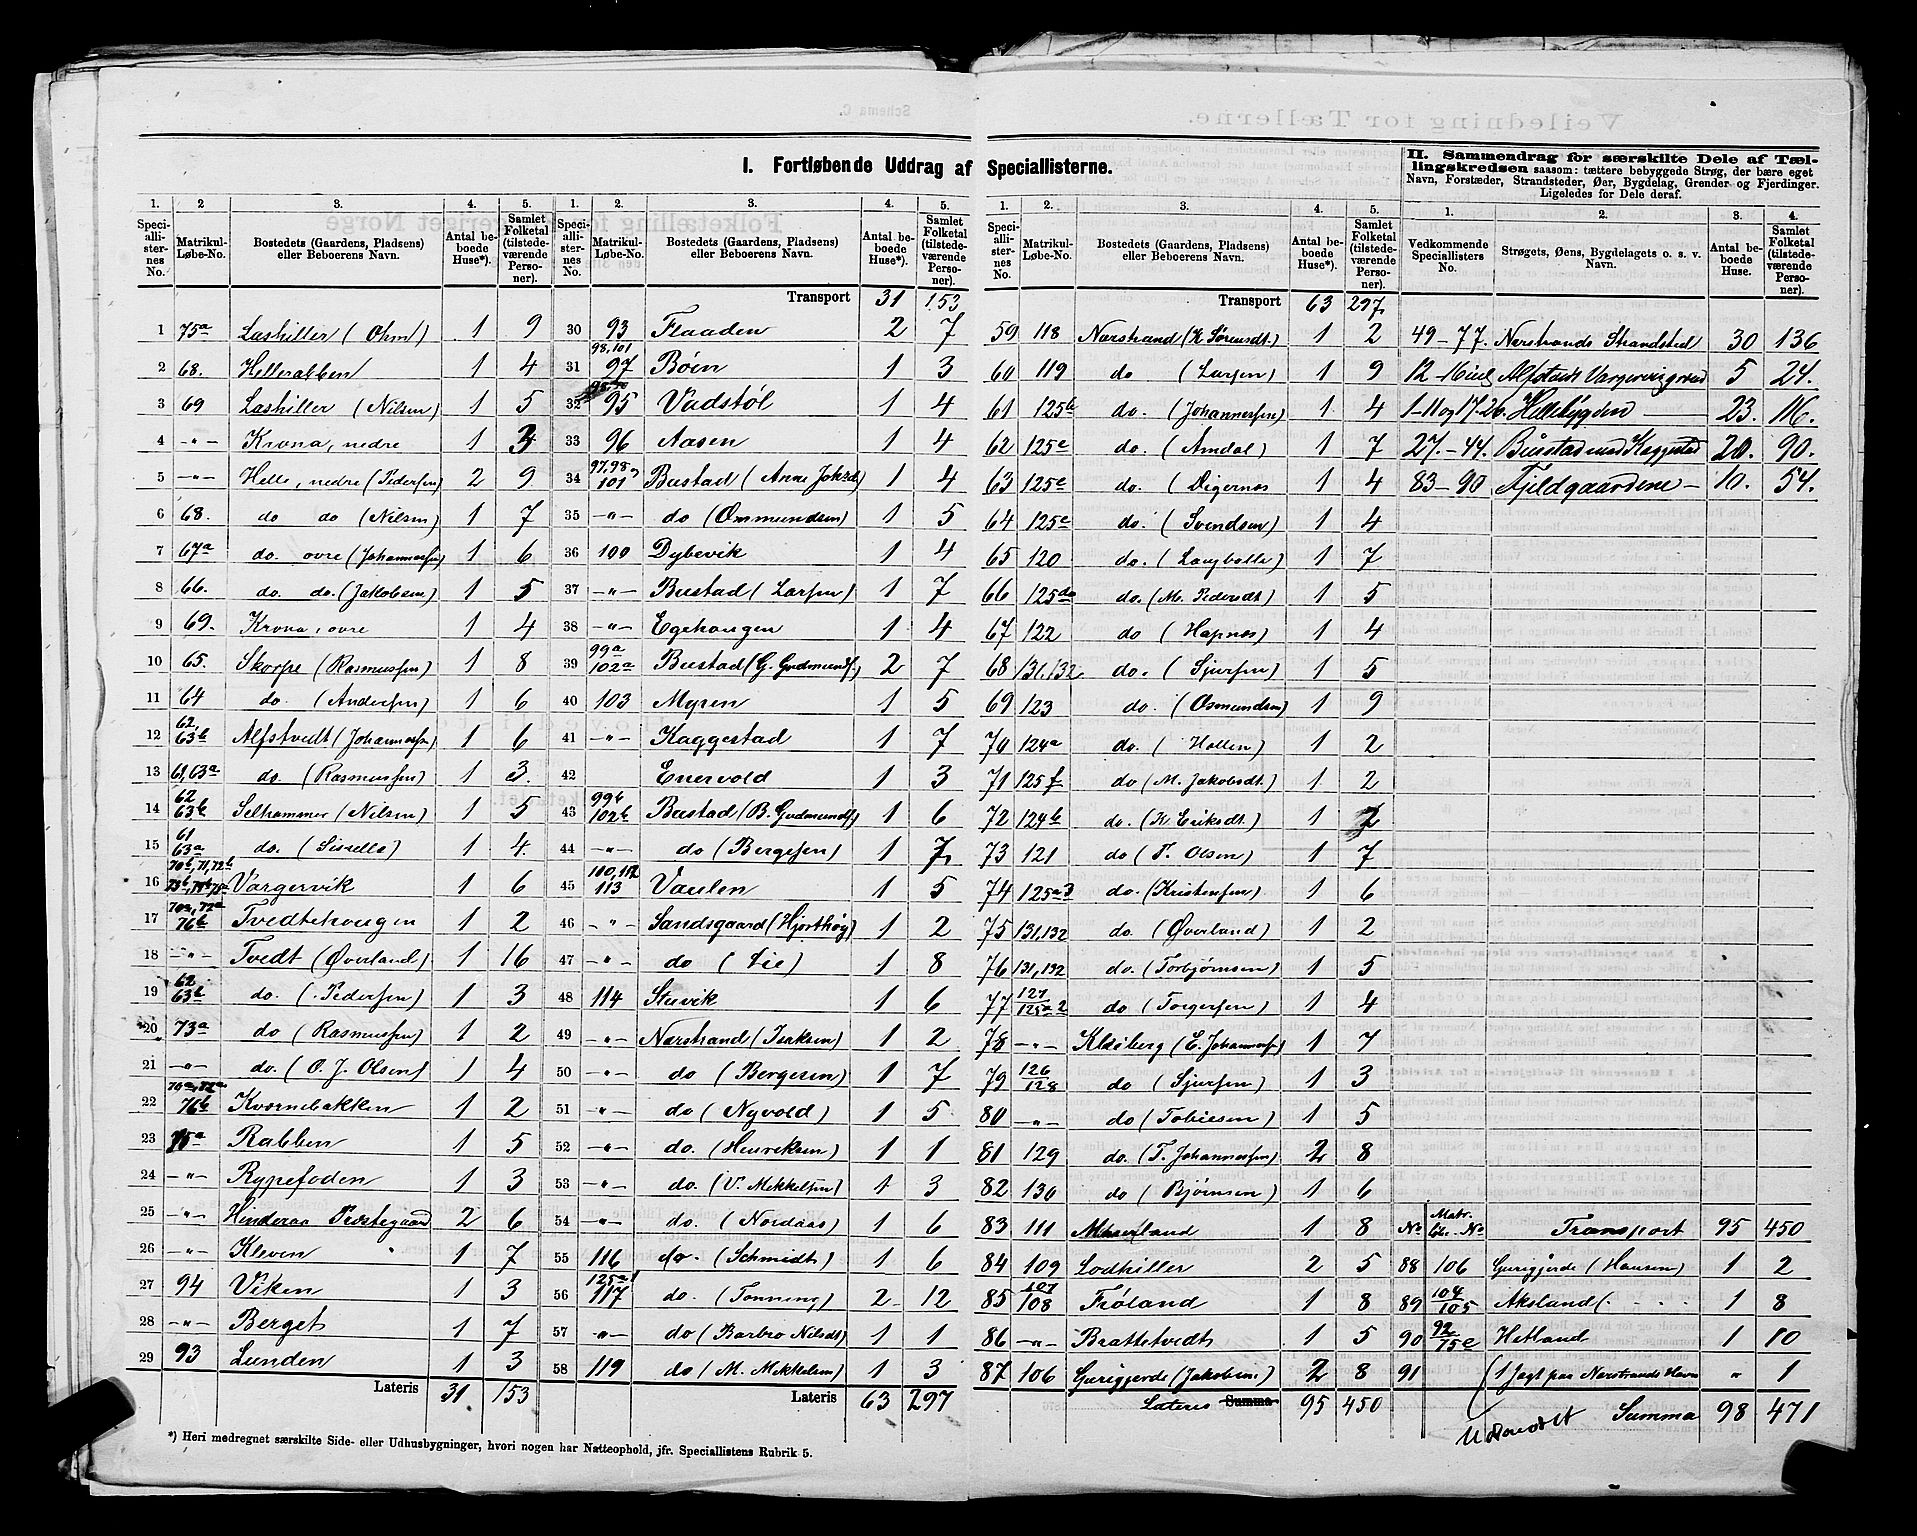 I. Fortløbende Uddrag af Speciallisterne.
II. Sammendrag for særskilte Dele af Tællingskredsen saasom: tættere bebyggede Strøg, der bære eget
Navn, Forstæder, Strandsteder, Øer, Bygdelag, Grender og Fjerdinger.
Ligeledes for Dele deraf.
1. 2 3. 4. 5.
Speciallisternes No. Matrikul-Løbe-No. Bostedets (Gaardens, Pladsens) eller Beboerens Navn. Antal beboede Huse*). Samlet Folketal (tilstedeværende Personer).
1 75a Lashiller (Ohm) 1 9
2 68. Helleräbben 1 4
3 69 Lashiller (Nilsen) 1 5
4 -"- Krona, nedre 1 3
5 -"- Helle, nedre (Pedersen) 2 9
6 68. do do (Nilsen) 1 7
7 67a do. øvre (Johannessen) 1 6
8 66. do. do. (Jakobsen) 1 5
9 69. Krona, øvre 1 4
10 65. Skorpe (Rasmussen) 1 8
11 64 do. (Andersen) 1 6
12 62, 63b Alfstvedt (Johannessen) 1 6
13 61, 63a do. (Rasmussen) 1 3.
14 62 63b Selhammer (Nilsen) 1 5
15 61 63a do. (Sissello) 1 4.
16 Vargervik 1 6
17 70a, 72a 76b Tvedtehougen 1 2
18 -"- Tvedt (Øverland) 1 16
19 62 63b do. (Pedersen) 1 3
20 73a do (Rasmussen) 1 2
21 -"- do. (O. J. Olsen) 1 4
22 70a, 72a 76b Kvernebakken 1 2
23 75a Rabben 1 5
24 -"- Rypefoden 1 3
25 -"- Hinderaa Præstegaard 2 6
26 -"- Kleven 1 7
27 94 Viken 1 3
28 -"- Berget 1 7
29 93 Lunden 1 3
Lateris 31. 153
1. 2. 3. 4. 5.
Speciallisternes No. Matrikul-Løbe-No. Bostedets (Gaardens, Pladsen) eller Beboerens Navn. Antal beboede Huse*). Samlet Folketal (tilstedeværende Personer).
Transport 31 153
30 93 Flaaden 2 7
31 98, 101 97 Bøen 1 3
32 95 Vadstøl 1 4
33 96 Aasen 1 4
34 97, 98, 101 Bustad (Anne Johsd) 1 4
35 -"- do (Ommundsen) 1 5
36 100 Dybevik 1 4
37 -"- Bustad (Larsen) 1 7
38 -"- Egehougen 1 4
39 99a 102a Bustad (G. Gudmunds.) 2 7
40 103 Myren 1 5
41 -"- Kaggestad 1 7
42 Enervold 1 3
43 99b 102b Bustad (B. Gudmunds) 1 6
44 -"- do (Bergesen) 1 7
45 110, 112 113 Vaulen 1 5
46 -"- Sandsgaard (Hjorthøy) 1 2
47 -"- do (Lie) 1 8
48 114 Stuvik 1 6
49 -"- Nærstrand (Isaksen) 1 2
50 -"- do (Bergesen) 1 7
51 -"- do (Nyvold) 1 5
52 -"- do. (Henriksen) 1 1
53 -"- do. (V. Mekkelsen) 1 3
54 -"- do. (Nordaas) 1 6
55 116 do. (Schmidt) 1 6
56 125a1 117 do. (Tonning) 2 12
57 -"- do (Barbro Nilsdt) 1 1
58 119 do (M. Mekkelsen) 1 3
Lateris 63 297
*) Heri medregnet særskilte Side- eller Udhusbygninger, hvori nogen har Natteophold, jfr. Speciallistens Rubrik 5.
1. 2. 3. 4. 5.
Speciallisternes No. Matrikul-Løbe-No. Bostedets (Gaardens, Pladsens) eller Beboerens Navn. Antal beboede Huse*). Samlet Folketal (tilstedeværende Personer).
Transport 63 297
59 118 Nærstrand (K Sørensdt.) 1 2
60 119 do (Larsen) 1 9
61 125b do. (Johannessen) 1 4
62 125c do. (Amdal) 1 7
63 125c do. (Digernes 1 4
64 125c do. (Svendsen) 1 4
65 120 do. (Langballe) 1 7
66 do. (M. Pedersdt) 1 5
67 122 do (Hapnes) 1 4
68 131, 132 do. (Sjursen) 1 5
69 123 do. (Osmundsen) 1 9
70 124a do. (Hallen) 1 2
71 125f do (M. Jakobsdt.) 1 2
72 124b do. (K. Eriksdt.) 1 2
73 121 do (T. Olsen) 1 7
74 125a3 do. (Kristensen) 1 6
75 131, 132 do. (Øverland) 1 2
76 131, 132 do. (Torbjørnsen) 1 5
77 127 125a2 do (Torgersen) 1 4
78 -"- Kleiberg (E. Johanness) 1 7
79 126 128 do (Sjursen) 1 3
80 -"- do (Tobiesen) 1 5
81 129 do. (T. Johannessen) 2 8
82 130 do (Bjørnsen) 1 6
83 111 1 8
84 109 Lodhiller 2 5
85 107 108 Frøland 1 8
86 -"- Brattetvedt 1 5
87 106 Gurigjerde (Jakobsen) 2 8
Lateris Summa 95 450
1. 2. 3. 4.
Vedkommende Speciallisters No. Strøgets, Øens, Bygdelagets o. s. v. Navn. Antal beboede Huse. Samlet Folketal (tilstedeværende Personer).
49-77. Nærstrands Strandsted 30 136
12-16 Alfstadt Vargervigvad 5 24.
1-11 og 17-26. Hellebygden 23. 116.
27.-44. Büstad med Kaggestad 20. 90.
83-90 Fjeldgaardene 10. 54.
No Matr. Lb. No Transport 95 450
88 106 Gurigjerde (Hansen) 1 2
89 104 105 Aksland (. . . . 1 8
90 92 75e Hetland 1 10
91 (1 Jagt paa Nærstrands Havn " 1
Summa 98 471